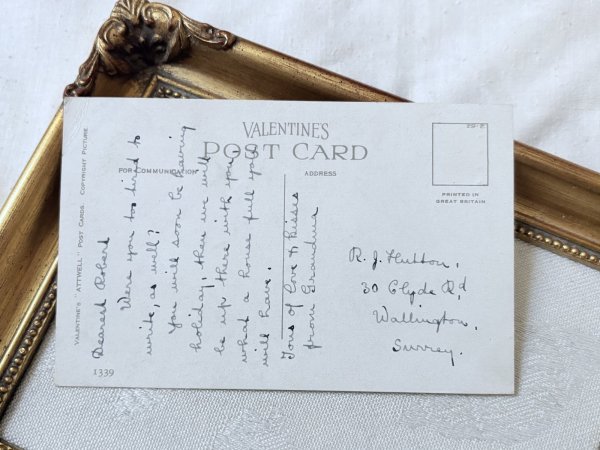 VALENTINE'S
POST CARD
FOR COMMUNICATION
ADDRESS
PRINTED IN
GREAT BRITAIN
VALENTINE'S "ATTWELL" POST CARDS. COPYRIGHT PICTURE
1339
Dearest Robert
Were you too tired to
write, as well?
You will soon be having
holiday, then we will
be up there with you,
what a house full you
will have.
Tons of love & kisses
from Grandma
R. J. Hutton,
30 Clyde Rd
Wallington,
Surrey.